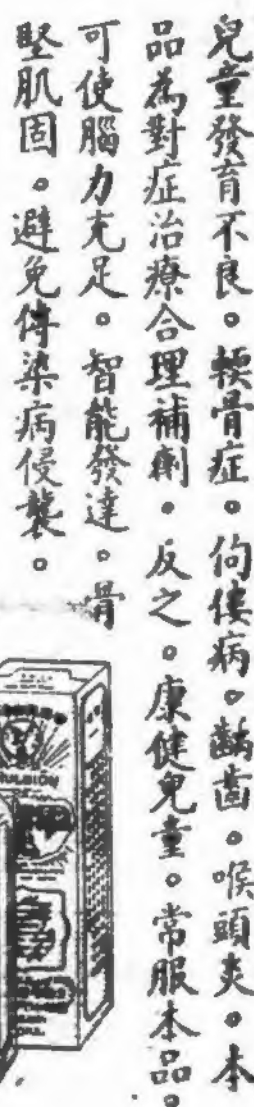 兒童發育不良。軟骨症。佝僂病。齲齒。喉頭炎。本
品為對症治療合理補劑。反之。康健兒童。常服本品。
可使腦力充足。智能發達。骨
堅肌固。避免傳染病侵襲。
EMULSION